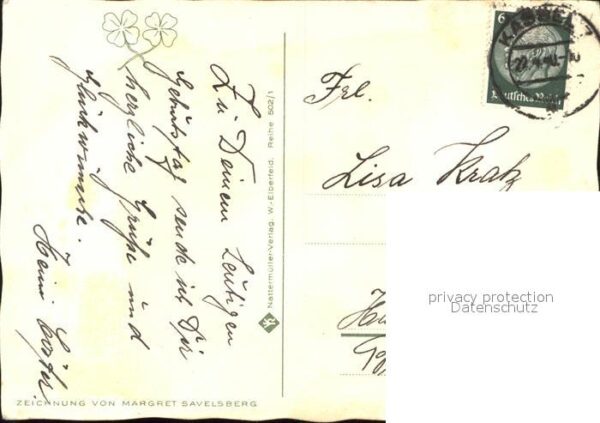 Zu Deinem heutigen
Geburtstag sende ich Dir
herzliche Grüße und
Glückwünsche.
Heini
ZEICHNUNG VON MARGRET SAVELSBERG
Nattermüller-Verlag, W.-Elberfeld. Reihe 502/1
6
Deutsches Reich
KASSEL 7
Frl.
Lisa Kratz
privacy protection
Datenschutz